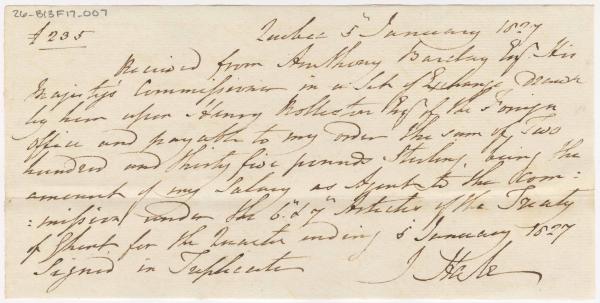 26-B13F17_007
£235
Quebec 5th January 1827
Received from Anthony Barclay Esqr. His
Majesty's Commissioner in a Set of Exchange drawn
by him upon Henry Rollester Esqr. of the Foreign
Office and payable to my order the sum of Two
hundred and thirty five pounds Sterling, being the
amount of my Salary as Agent to the Com:
:mission under the 6th & 7th Articles of the Treaty
of Ghent for the Quarter ending 5 January 1827
Signed in Triplicate
J Hale